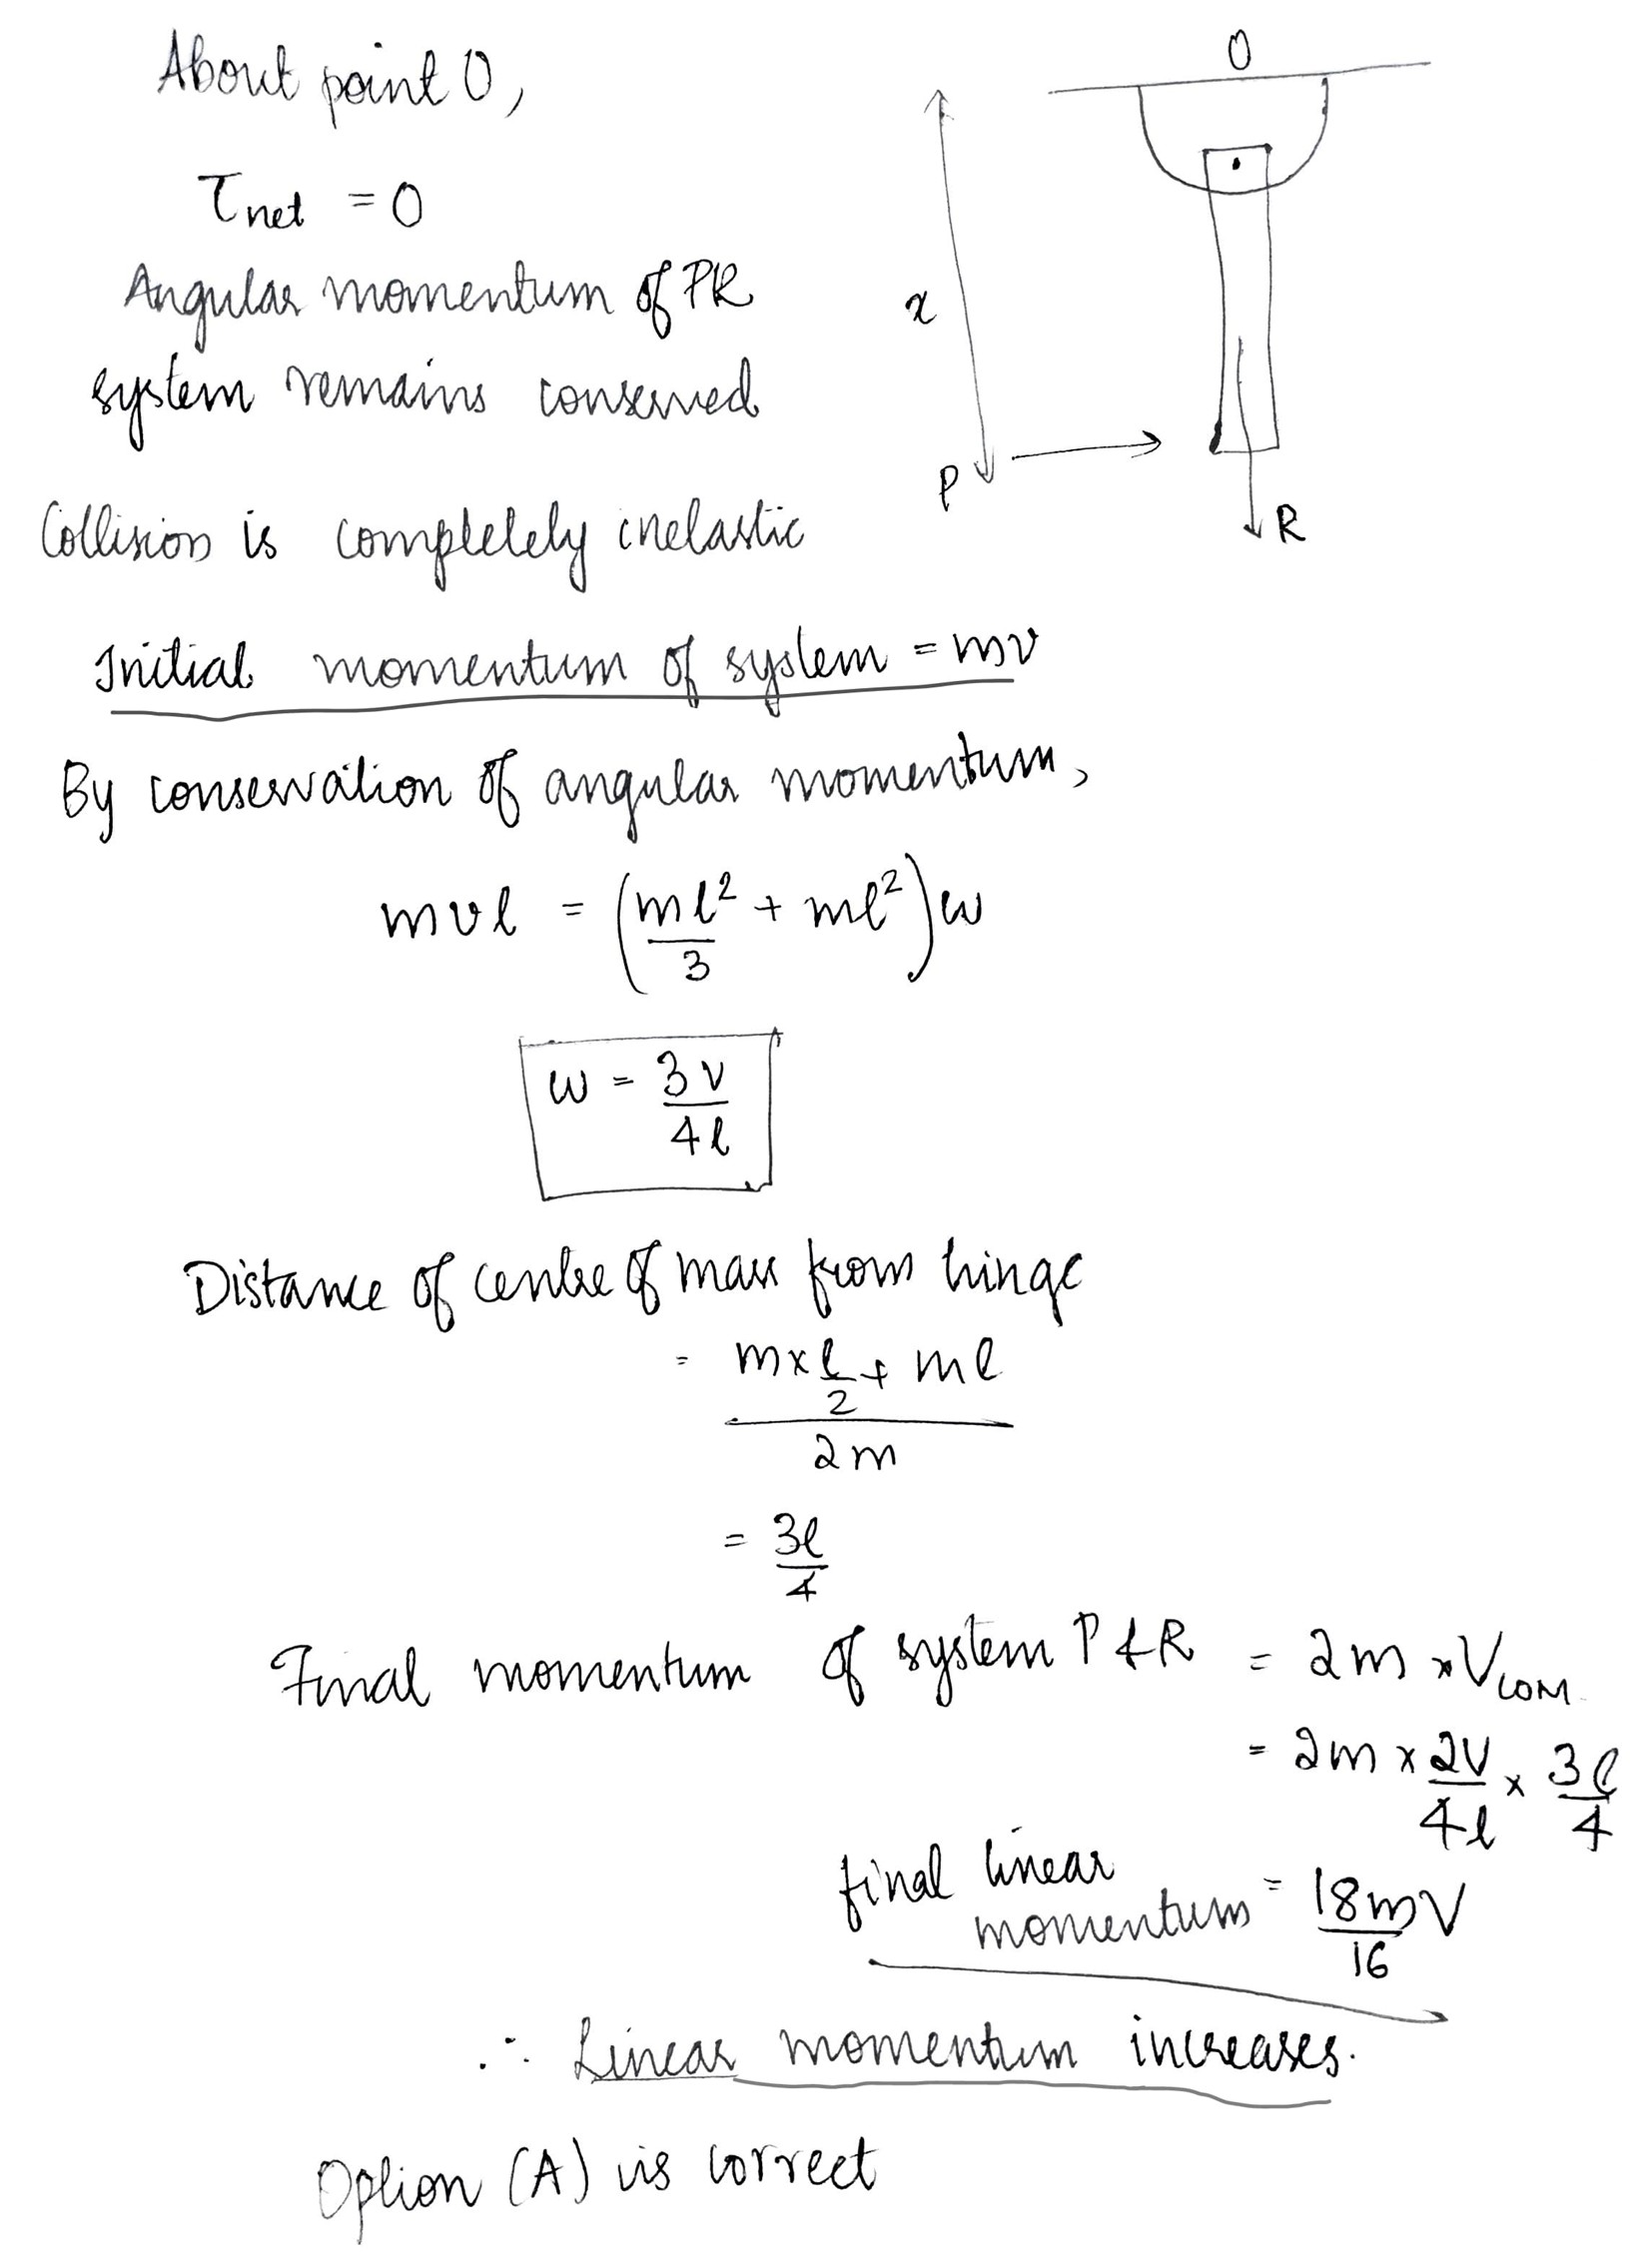 About point O,
τnet = 0
Angular momentum of PR
system remains conserved
O
x
P
R
Collision is completely inelastic
Initial momentum of system = mv
By conservation of angular momentum,
mvl = (ml²/3 + ml²)ω
ω = 3v/4l
Distance of centre of mass from hinge
= (m×l/2 + ml)/2m
= 3l/4
Final momentum of system P & R = 2m × VCOM
= 2m × 2V/4l × 3l/4
final linear
momentum = 18mV/16
∴ Linear momentum increases.
Option (A) is correct